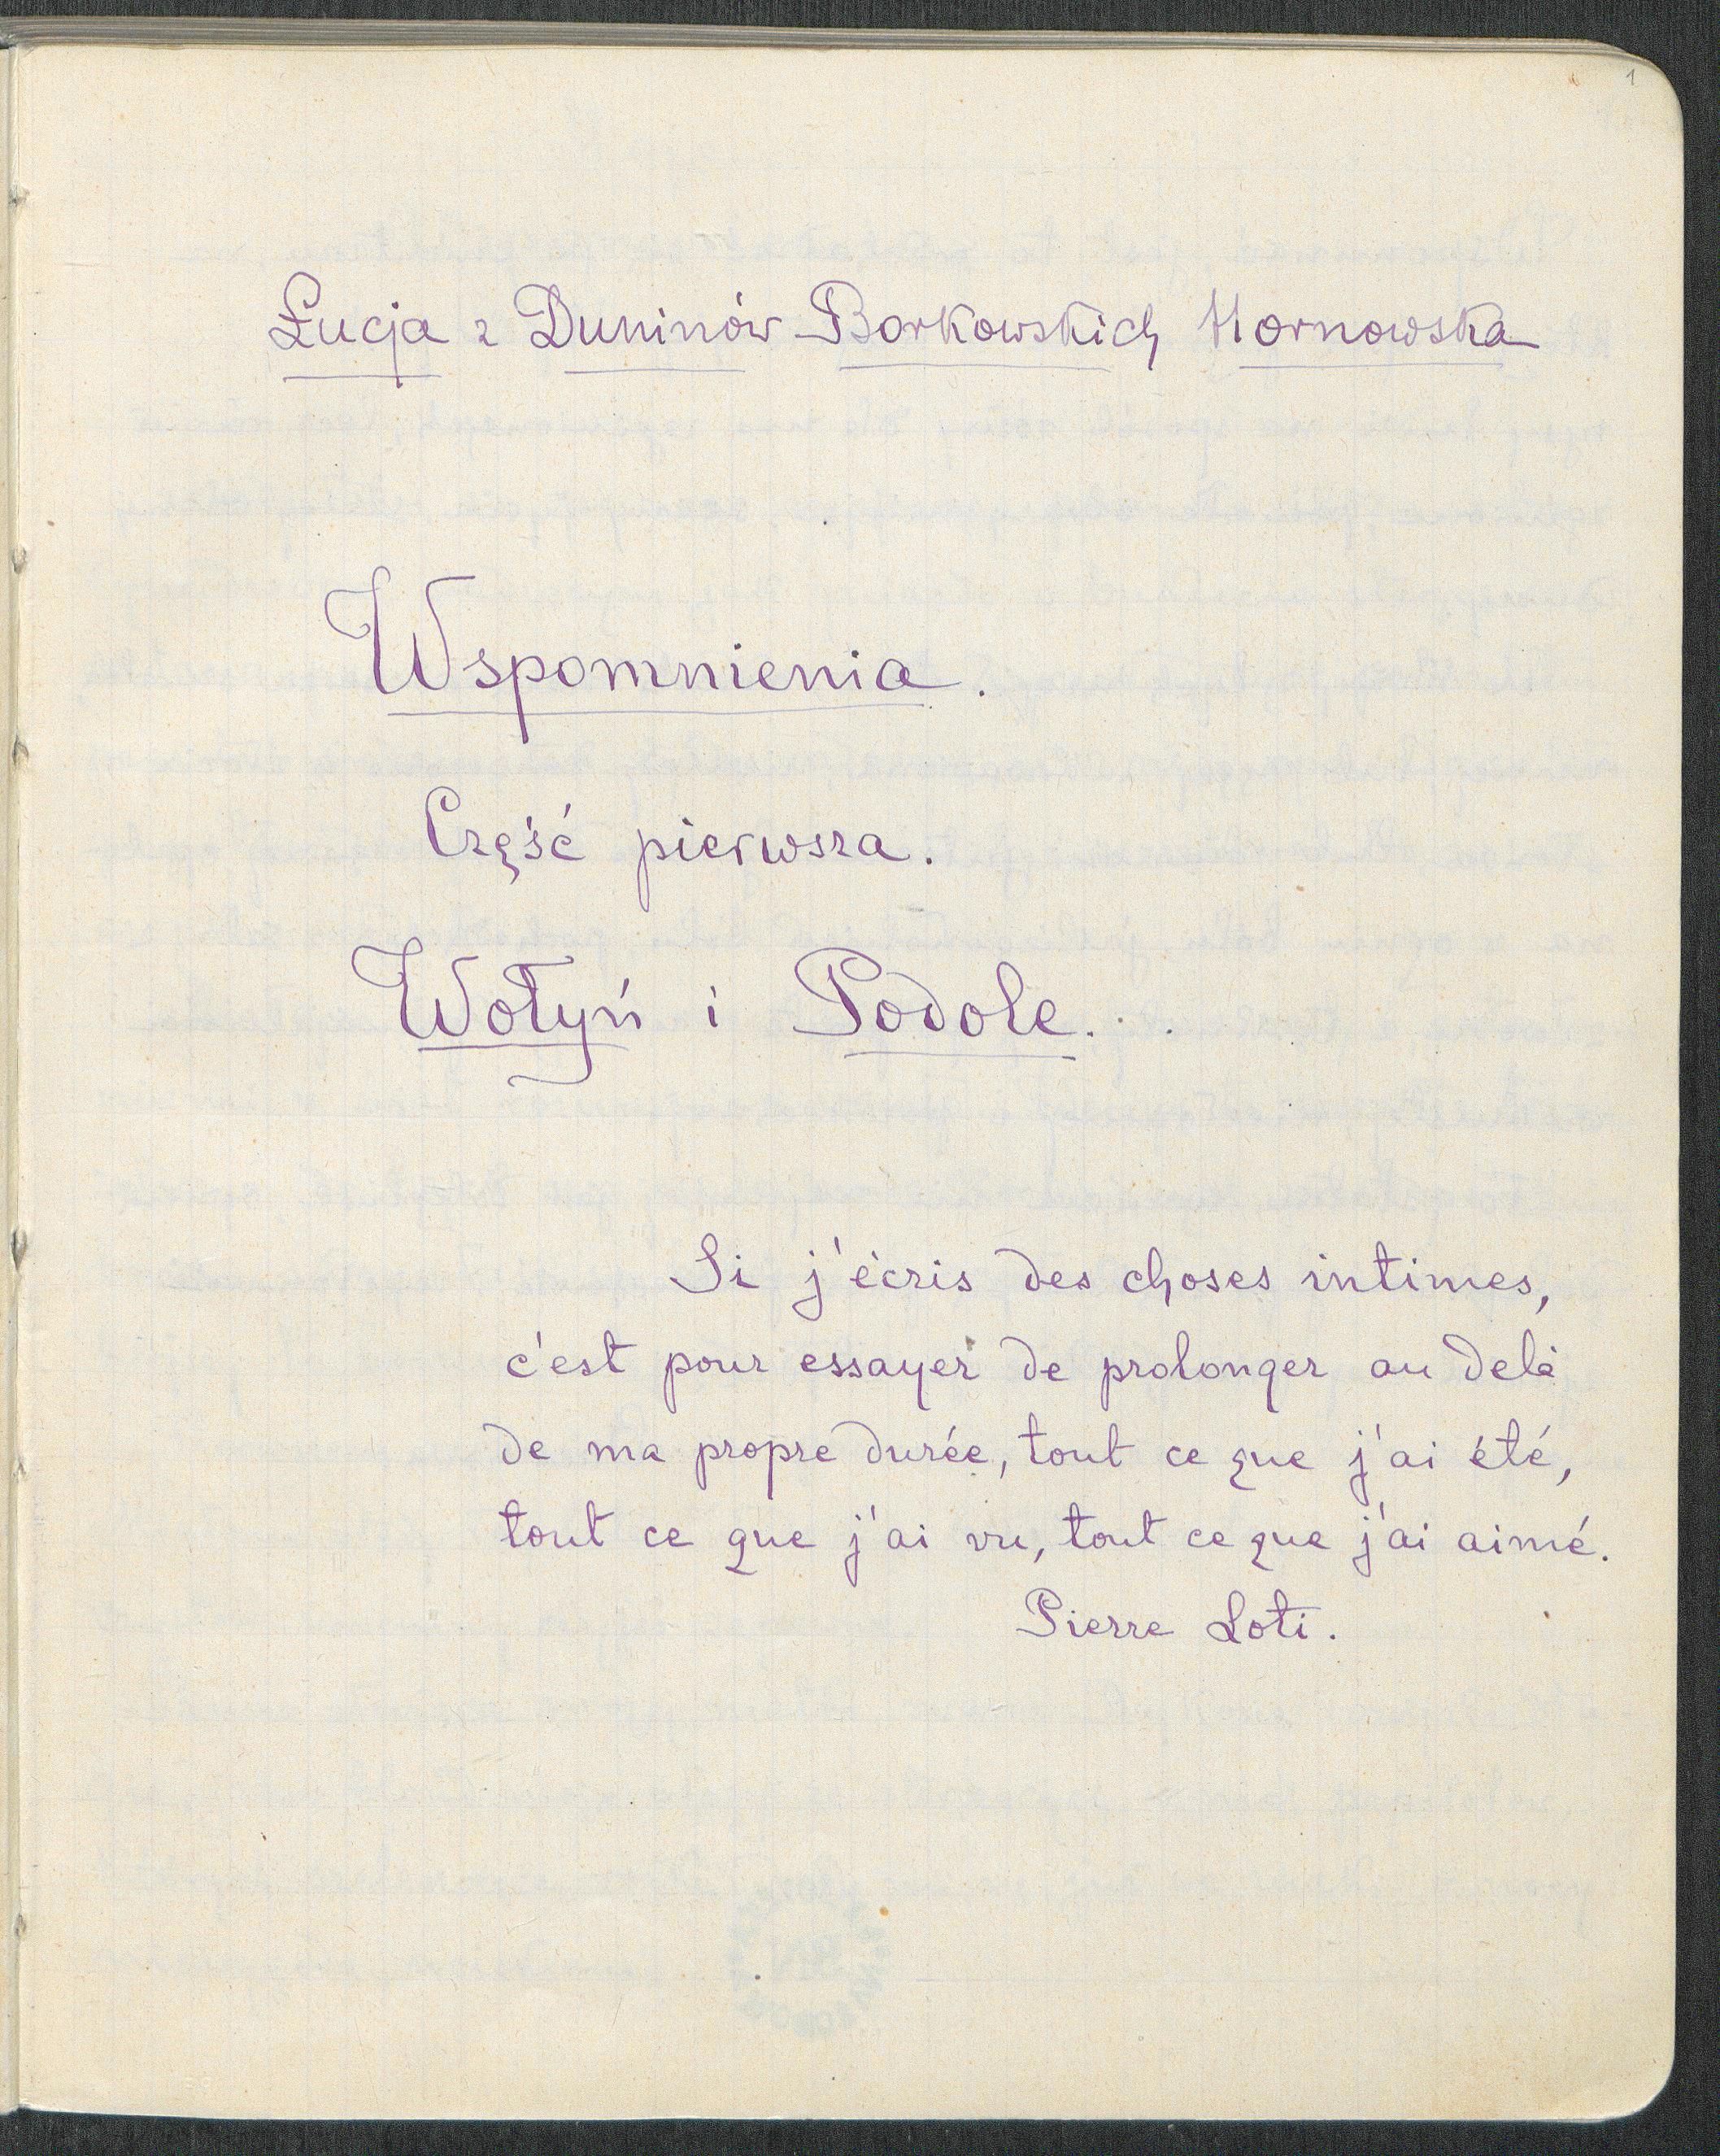 1
Łucja z Duninów-Borkowskich Hornowska
Wspomnienia.
Część pierwsza.
Wołyń i Podole...
Si j'écris des choses intimes,
c'est pour essayer de prolonger au delà
de ma propre durée, tout ce que j'ai été,
tout ce que j'ai vu, tout ce que j'ai aimé.
Pierre Loti.